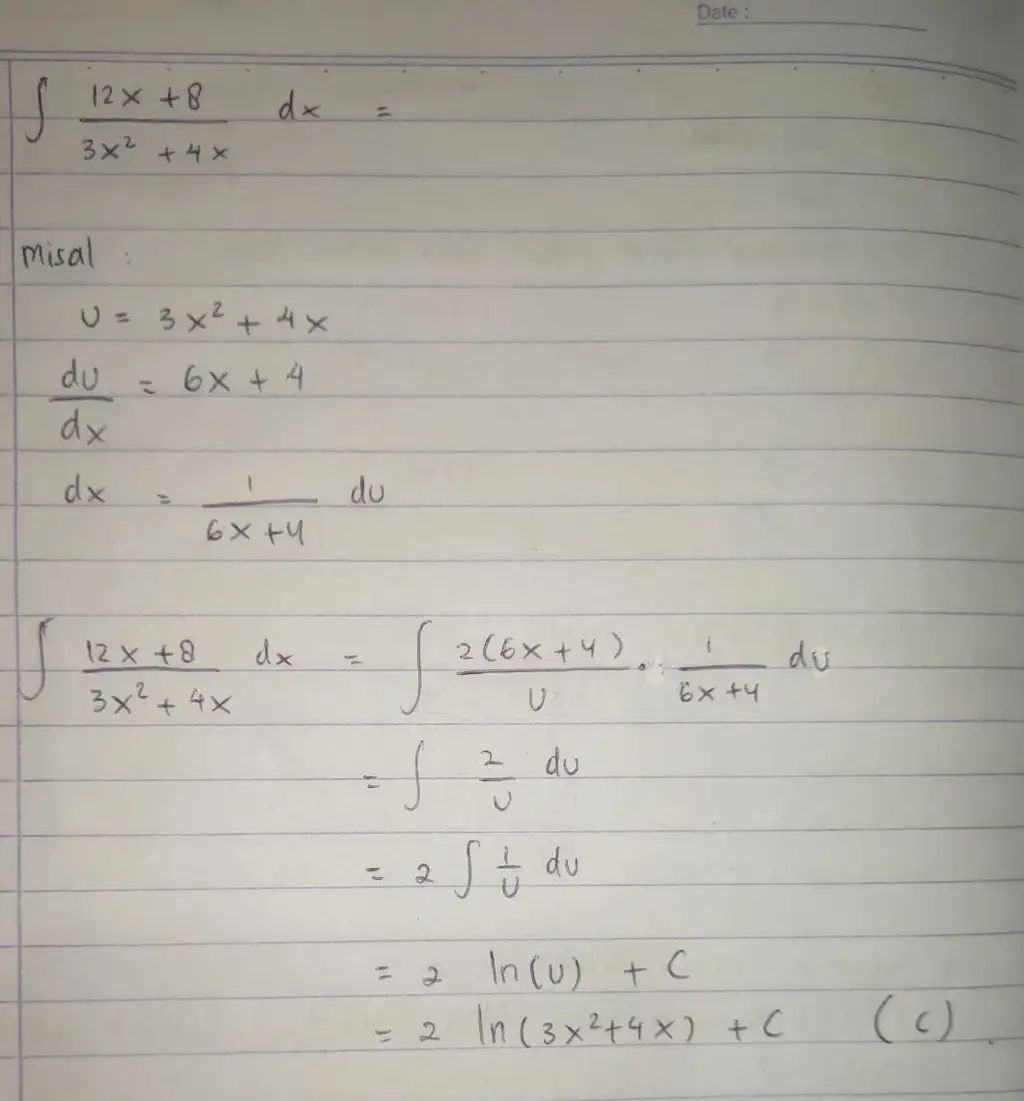 Date :
∫ (12x + 8)/(3x² + 4x) dx =
misal :
U = 3x² + 4x
dU/dx = 6x + 4
dx = 1/(6x + 4) dU
∫ (12x + 8)/(3x² + 4x) dx = ∫ 2(6x + 4)/U . 1/(6x + 4) dU
= ∫ 2/U dU
= 2 ∫ 1/U dU
= 2 ln(U) + C
= 2 ln(3x²+4x) + C (c).